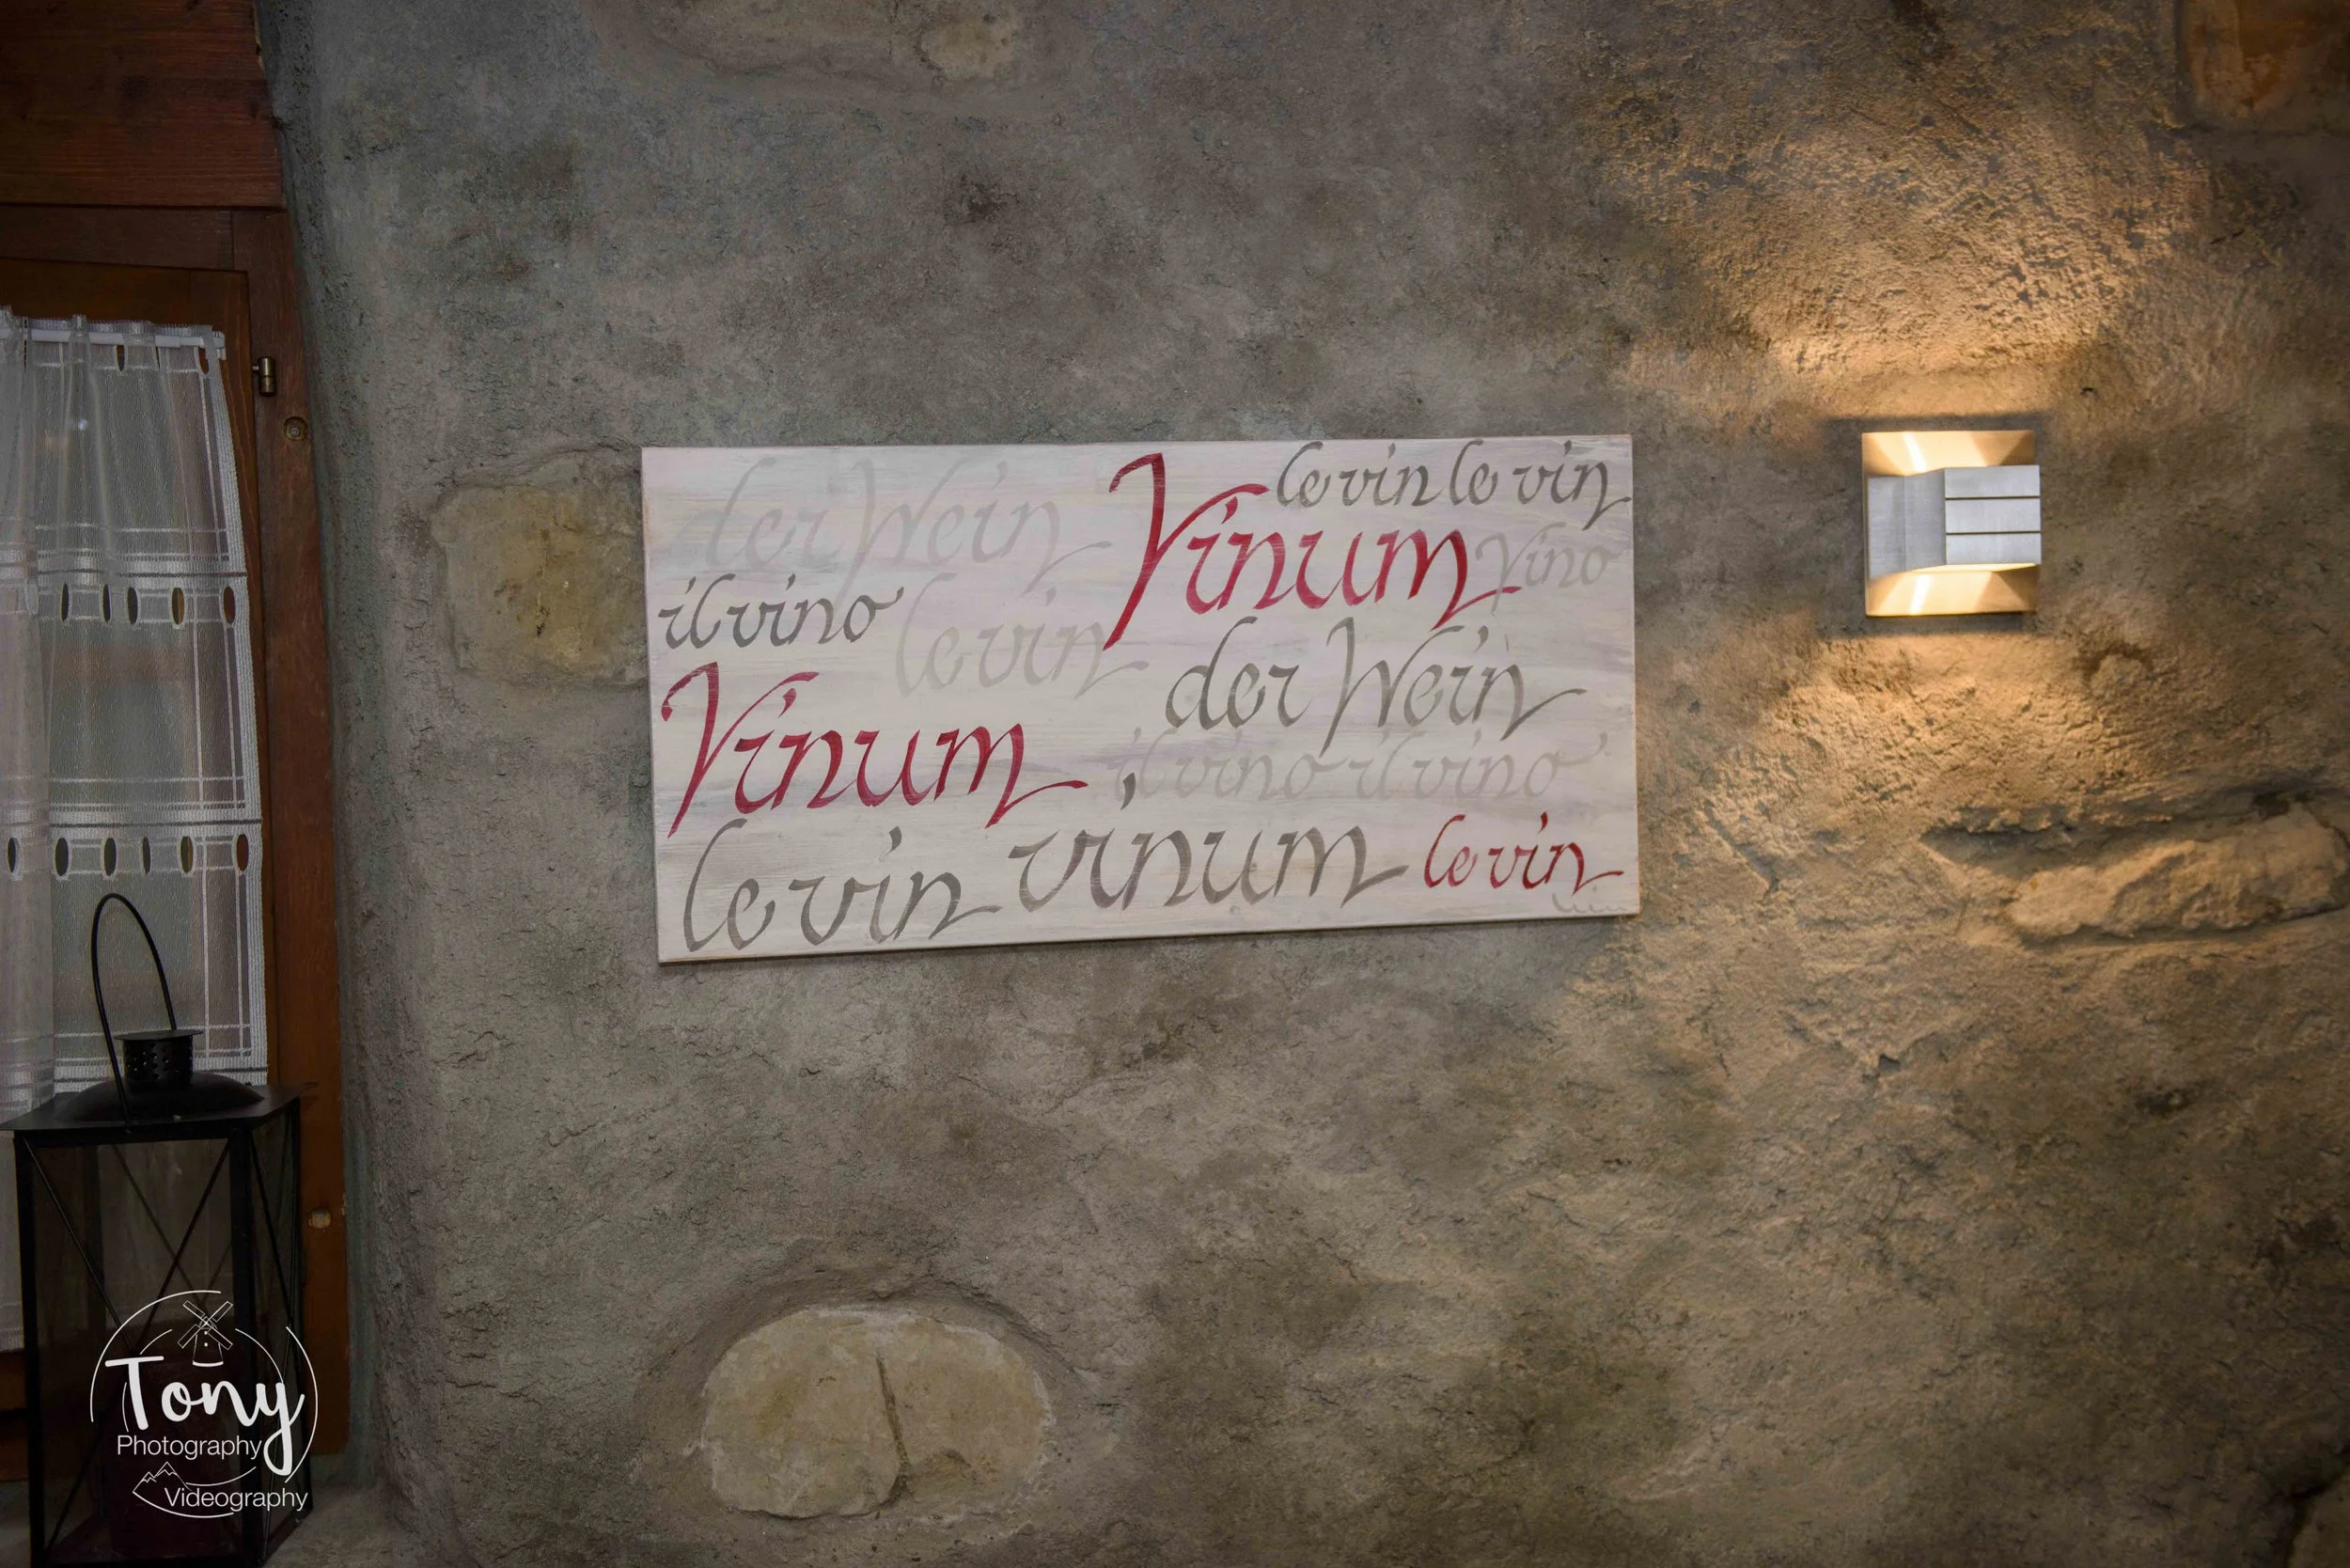 der Wein
Vinum
le vin le vin
Vino
il vino
le vin
der Wein
Vinum
il vino il vino
le vin
vinum
le vin
Tony
Photography
Videography